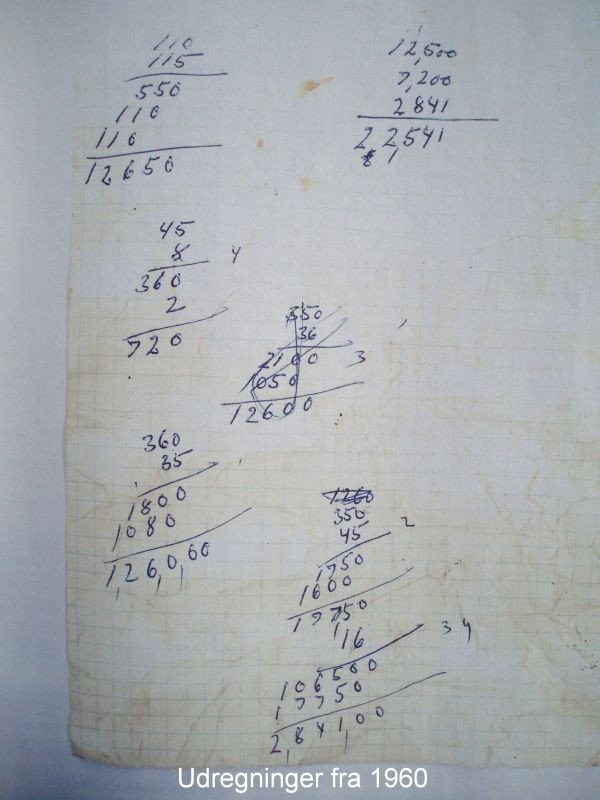 110
115
550
110
110
12650
12,500
7,200
2841
22541
1
45
8 4
360
2
720
350
36
2100 3
1050
12600
360
35
1800
1080
1,26,0,00
1260
350
45 2
1750
1600
17750
16 34
106500
17750
2,841,00
Udregninger fra 1960